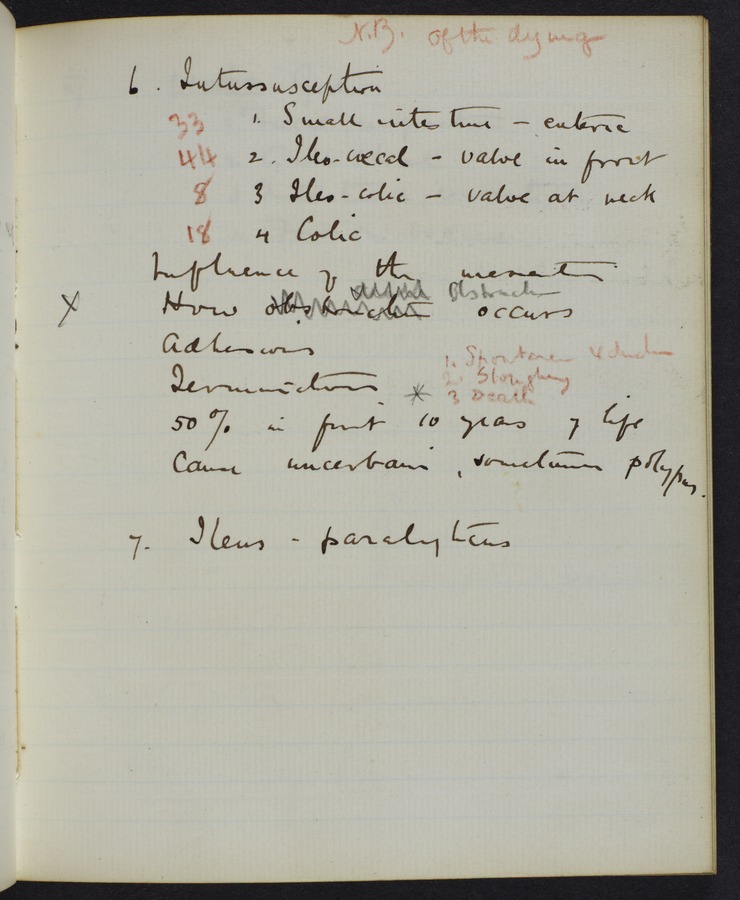 N.B. of the dying
6. Intussusception
33 1. Small intestine - enteric
44 2. Ileo-cæcal - valve in front
8 3 Ileo-colic - valve at neck
18 4 Colic
Influence of the mesentery
X How obstruction occurs
Adhesions
1. Spontaneous reduction
Terminations * 2. Sloughing
3 Death
50% in first 10 years of life
Cause uncertain, sometimes polypus.
7. Ileus - paralyticus